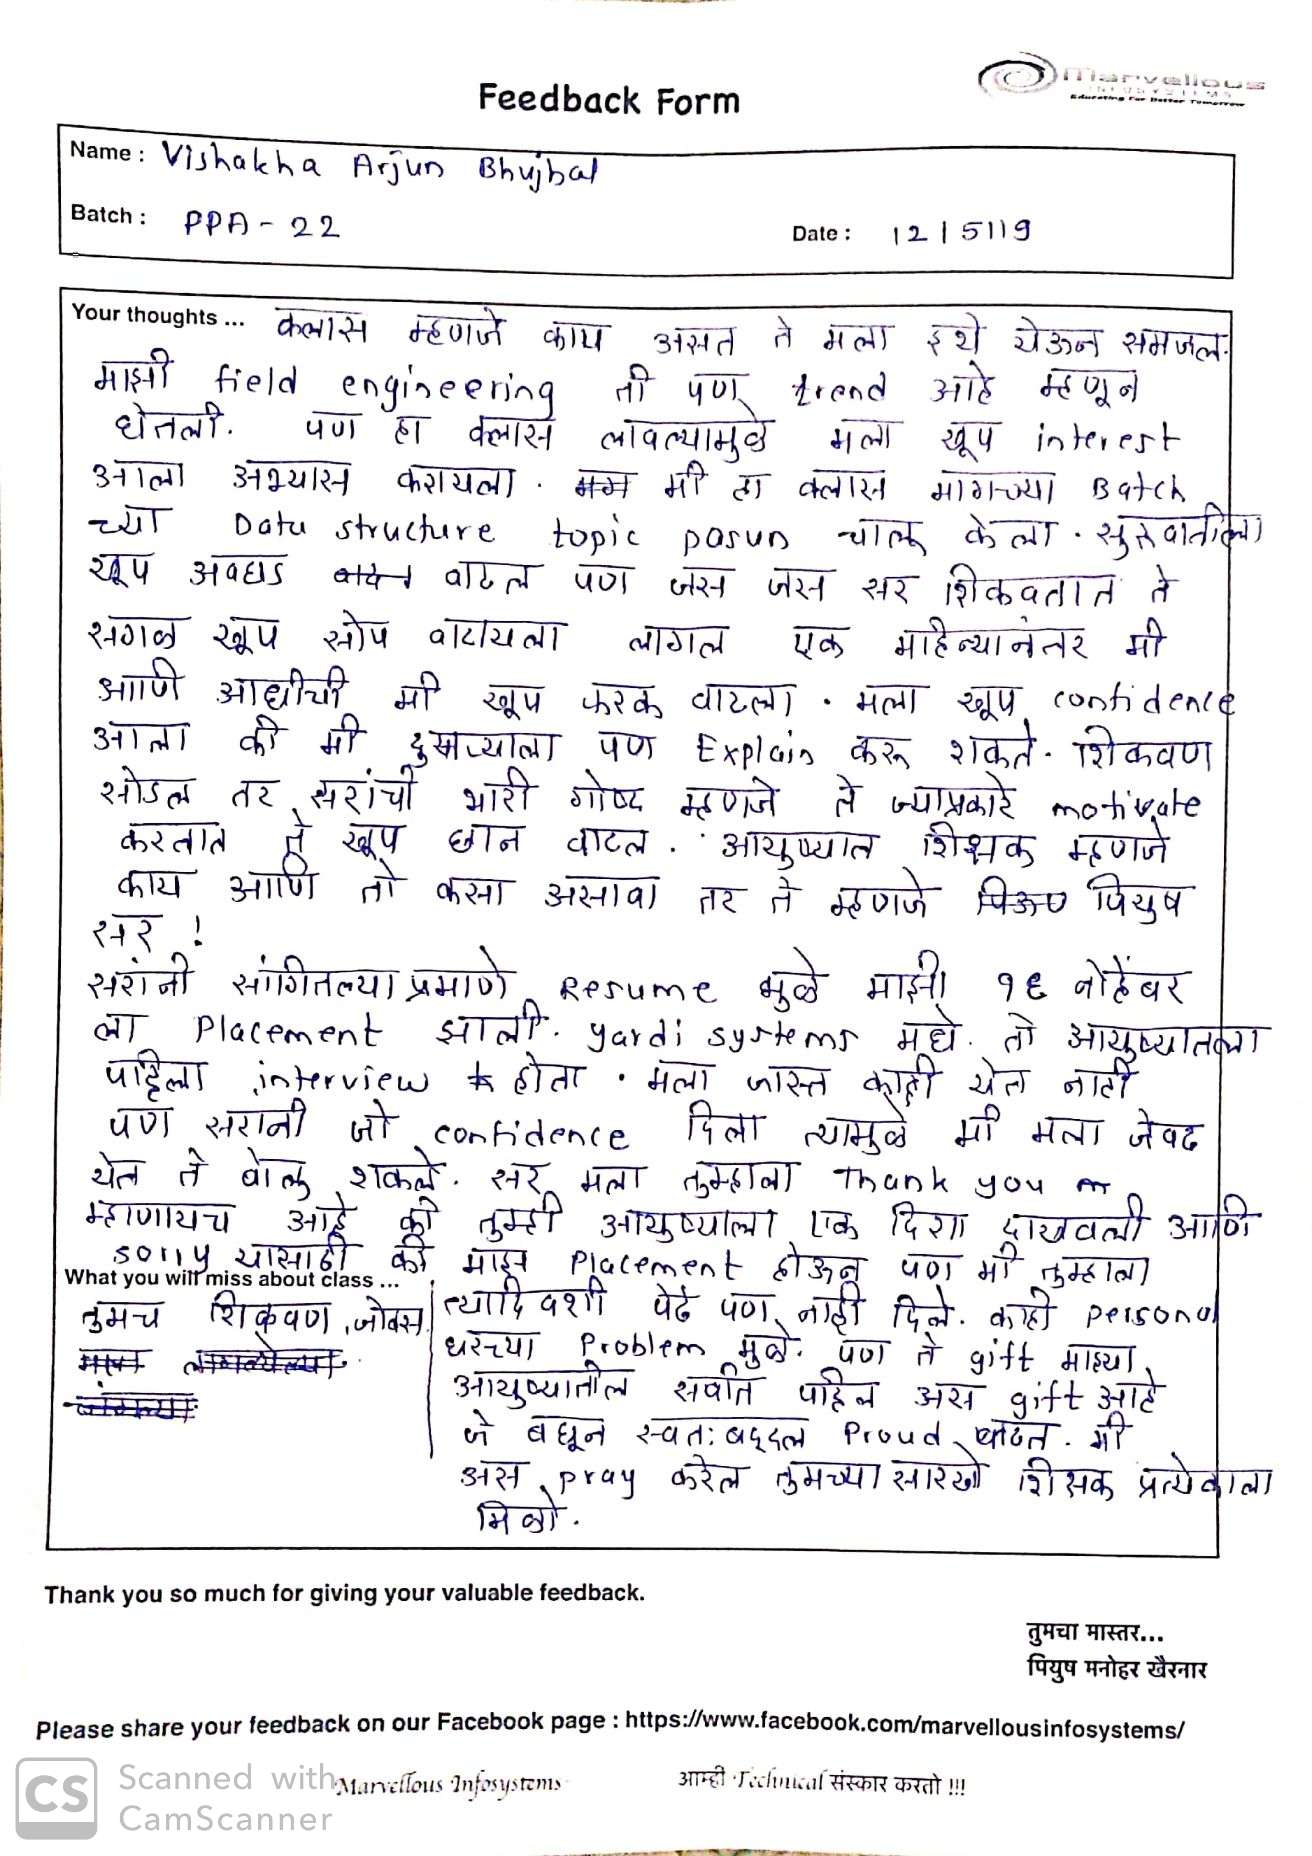 Marvellous
INFOSYSTEMS
Educating For Better Tomorrow
Feedback Form
Name : Vishakha Arjun Bhujbal
Batch : PPA - 22
Date : 12/5/19
Your thoughts ... क्लास म्हणजे काय असत ते मला इथे येऊन समजल.
माझी field engineering ती पण trend आहे म्हणून
घेतली. पण हा क्लास लावल्यामुळे मला खूप interest
आला अभ्यास करायला. मी हा क्लास मागच्या Batch
च्या Data structure topic pasun चालू केला. सुरुवातीला
खूप अवघड वाटल पण जस जस सर शिकवतात ते
सगळ खूप सोप वाटायला लागल एक महिन्यानंतर मी
आणि आधीची मी खूप फरक वाटला. मला खूप confidence
आला की मी दुसऱ्याला पण Explain करू शकते. शिकवण
सोडल तर सरांची भारी गोष्ट म्हणजे ते ज्याप्रकारे motivate
करतात ते खूप छान वाटल. आयुष्यात शिक्षक म्हणजे
काय आणि तो कसा असावा तर ते म्हणजे पियुष
सर !
सरांनी सांगितल्या प्रमाणे Resume मुळे माझी १६ नोव्हेंबर
ला Placement झाली. yardi systems मधे. तो आयुष्यातला
पहिला interview होता. मला जास्त काही येत नाही
पण सरांनी जो confidence दिला त्यामुळे मी मला जेवढ
येत ते बोलू शकले. सर मला तुम्हाला Thank you
म्हाणायच आहे की तुम्ही आयुष्याला एक दिशा दाखवली आणि
sorry यासाठी की माझ Placement होऊन पण मी तुम्हाला
त्यादिवशी पेढे पण नाही दिले. काही personal
घरच्या Problem मुळे. पण ते gift माझ्या
आयुष्यातील सर्वात पहिल अस gift आहे
जे बघून स्वत: बद्दल Proud वाटत. मी
अस pray करेल तुमच्या सारखे शिक्षक प्रत्येकाला
मिळो.
What you will miss about class ...
तुमच शिकवण, जोक्स
Thank you so much for giving your valuable feedback.
तुमचा मास्तर...
पियुष मनोहर खैरनार
Please share your feedback on our Facebook page : https://www.facebook.com/marvellousinfosystems/
Marvellous Infosystems आम्ही Technical संस्कार करतो !!!
CS Scanned with
CamScanner